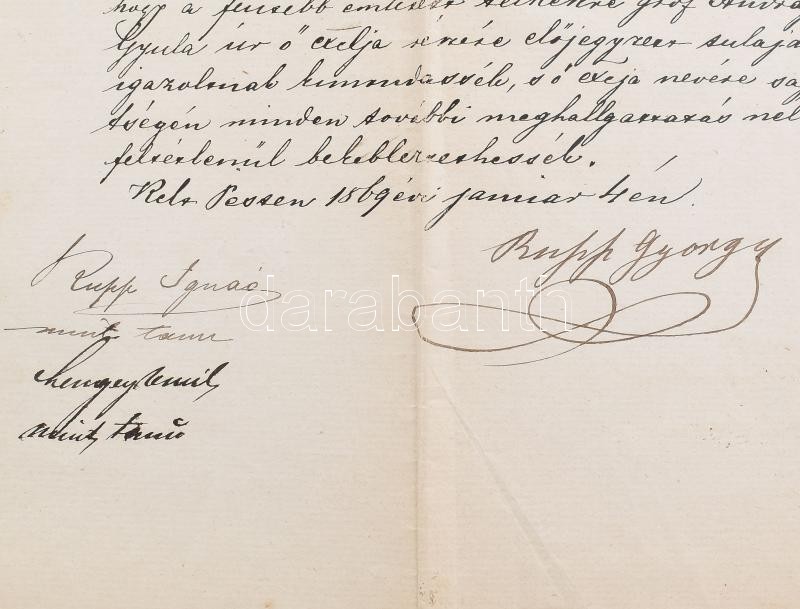 hogy a fentebb említett telkekre gróf Andrá
Gyula úr ő Exclja részére előjegyzett tulaja
igazoltnak kimondassék, s ő Exclja nevére
tségén minden további meghallgattatás nél
feltétlenül bekebleztethessék.
Kelt Pesten 1869 évi január 4én.
Rupp György
Rupp Ignác
mint tanu
Lengey Emil,
mint tanú
darabanth